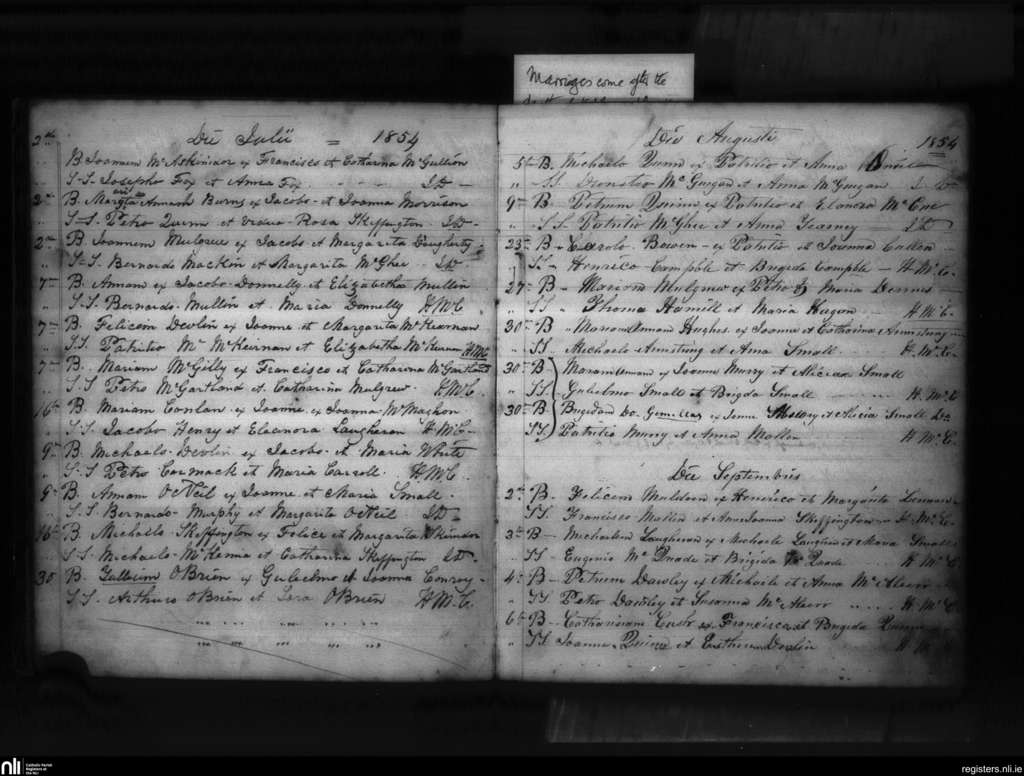 Marriages come after the
Die Julii = 1854
2da B Joannem McAskindor ex Francisco et Catharina McGullion
" S-S. Josepho Fox et Anna Fox - - - ID -
2da B. Margta Annam Burns ex Jacobo et Joanna Morrison
" S-S. Petro Quinn et Rosa Skeffington ID -
2da B Joannem Mulgrue ex Jacobo et Margarita Daugherty -
" S-S. Bernardo Mackin et Margarita McGhee ID -
7ma B. Annam ex Jacobo Donnelly et Elizabetha Mullin
" S.S. Bernardo Mullin et Maria Donnelly H.McC
7ma B. Felicem Devlin ex Joanne et Margarita McKearnan
" S.S. Patritio McKeirnan et Elizabetha McKernan H.McC
7ma B. Mariam McGilly ex Francisco et Catharina McGartland
" S.S Petro McGartland et Catharina Mulgrew H.McC.
16ta B. Mariam Conlan ex Joanne ex Joanna McMaghon
" S.S. Jacobo Henry et Eleanora Laugheran H McC -
9na B. Michaele Devlin ex Jacobo et Maria White
" S-S Petro Cormack et Maria Carroll. H.McC
9na B. Annam O'Neil ex Joanne et Maria Small.
" S.S. Bernardo Murphy et Margarita O'Neil ID -
16ta B. Michaele Skeffington ex Felice et Margarita Skindor
" S.S. Michaele McKenna et Catharina Skeffington ID -
30 B. Gulielm O'Brien ex Gulielmo et Joanna Conroy -
S.S. Arthuro O'Brien et Sara O'Brien H.McC.
Die Augusti 1854
5ta B. Michaele Quinn ex Patritio et Anna
" SS. McGurgan et Anna McGurgan ID
9na B - Petrum Quinn ex Patritio et Elenora McCue
" S.S Patritio McGhee et Anna Tearney ID
23 B - Carolo Bowen - ex Patritio et Joanna Callon
" SS - Henrico Campble et Brigida Campble - H McC.
27 B - Mariam Mulgrew ex Petro et Maria Dennis -
" SS Thoma Hamill et Maria Hagan H.McC.
30 B " Mariam Annam Hughes ex Joanne et Catharina Armstrong
" SS - Michaele Armstrong et Anna Small H.McC.
30 B Mariam Annam ex Joanne Murry et Alicia Small
SS Gulielmo Small et Brigida Small H.McC
30 B Brigidam Do. Gemellas ex Joanne Murry et Alicia Small Do.
SS Patritio Murry et Anna Mallen H McC.
Die Septembris
2da B - Felicem Muldoon ex Henrico et Margarita
SS. Francisco Mallen et Anna Joanna Skeffington H.McC.
3tia B - Michaelem Laugheran ex Michaele Laugheran et Maria Small
SS - Eugenio McQuade et Brigida McQuade H McC
4ta B - Petrum Dawley ex Michaele et Anna McAleer
" SS Petro Dawley et Susanna McAleer H.McC
6ta B - Catharinam Cush ex Francisco et Brigida Quinn
" SS Joanne Quinn et Esthera Devlin H.M
nli
Catholic Parish Registers at the NLI
registers.nli.ie